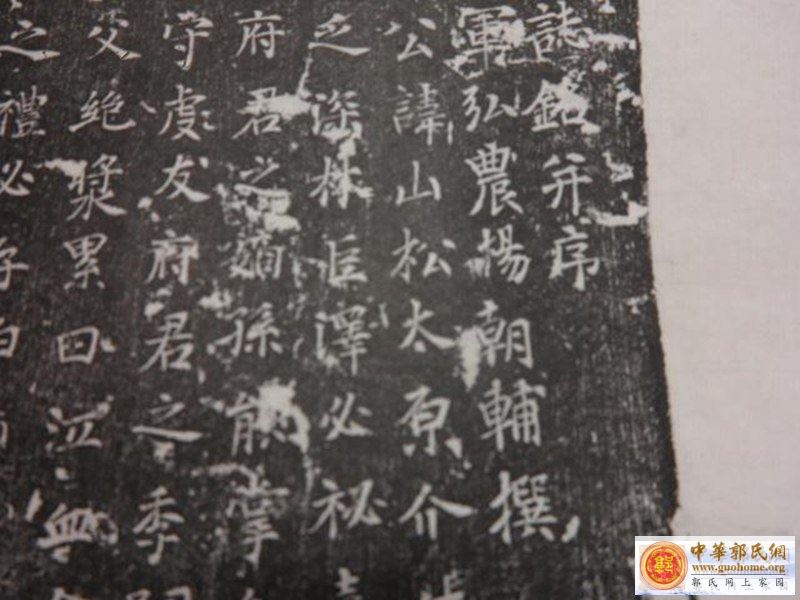 誌銘并序
軍弘農楊朝輔撰
公諱山松太原介
乏深林巨澤必祕
府君之嫡孫能掌
守虔友府君之季
父絶漿累日泣血
之禮必
中華郭氏網
www.guohome.org
郭氏网上家园